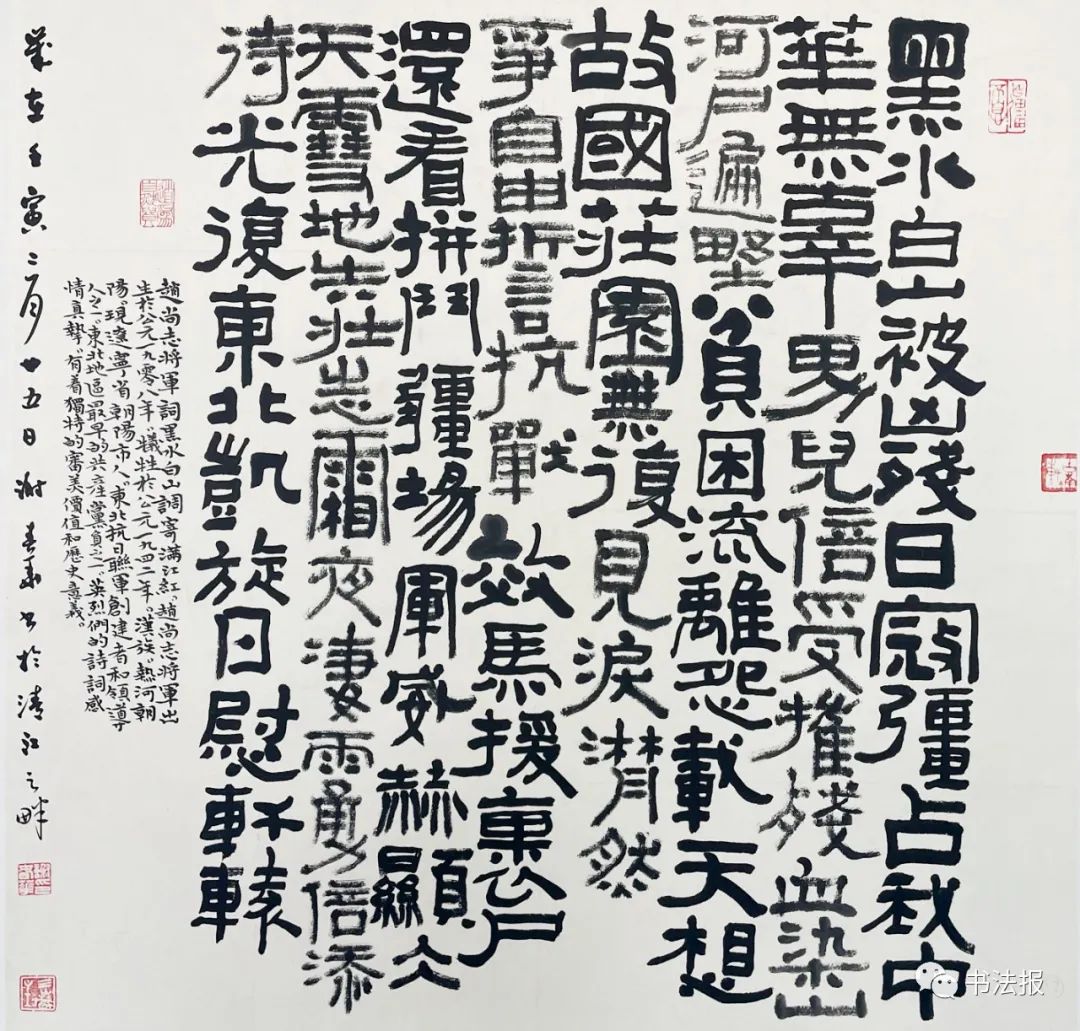 黑水白山被凶殘日寇彊占我中
華無辜男兒倍受摧殘血染山
河尸遍野貧困流離怨載天想
故國莊園無復見淚潸然
爭自由誓抗戰效馬援裹尸
還看拼鬥疆場軍威赫顯仌
天雪地共壯志霜夜凄雨勇倍添
待光復東北凱旋日慰軒轅
趙尚志將軍詞黑水白山調寄滿江紅趙尚志將軍出
生於公元一九零八年犧牲於公元一九四二年漢族熱河朝
陽現遼寧省朝陽市人東北抗日聯軍創建者和領導
人之一東北地區最早的共產黨員之一英烈們的詩詞感
情真摯有着獨特的審美價值和歷史意義。
歲在壬寅二月廿五日謝春書於清江之畔
书法报